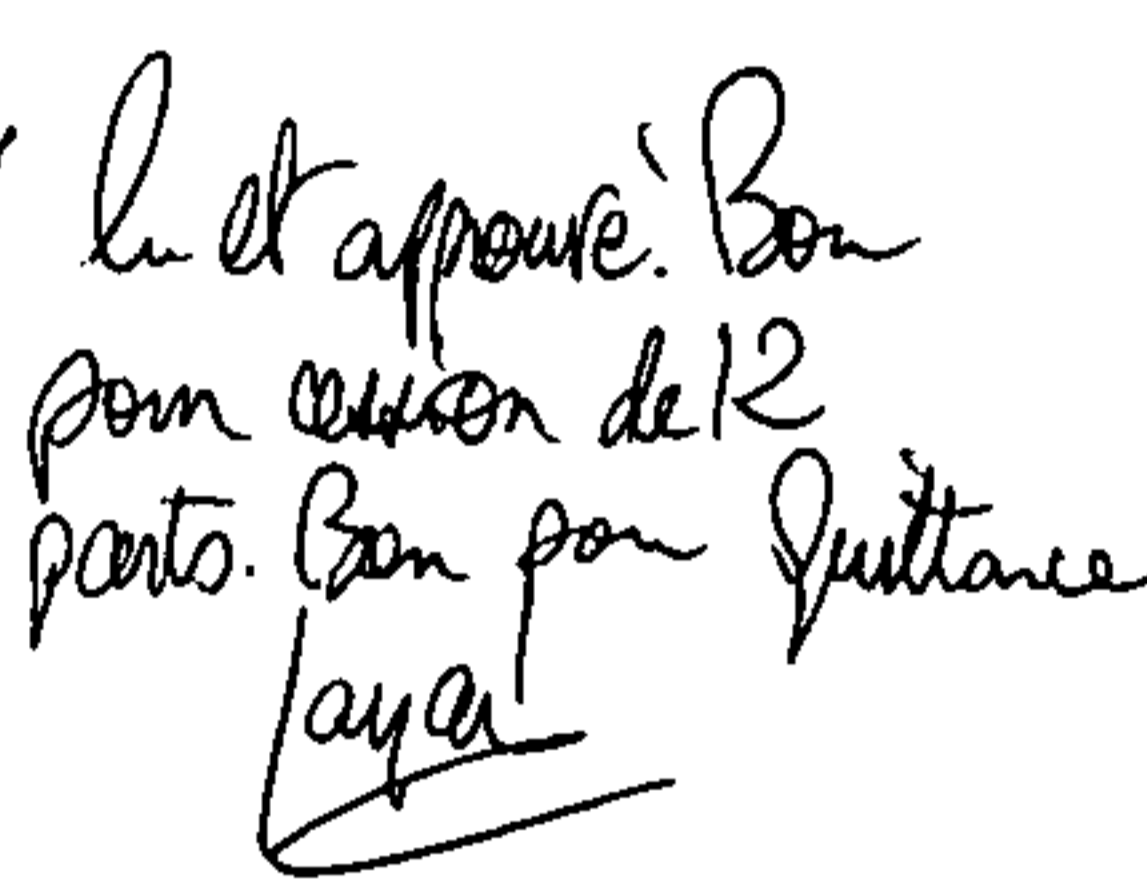 lu et approuvé. Bon
pour cession de 12
parts. Bon pour Quittance